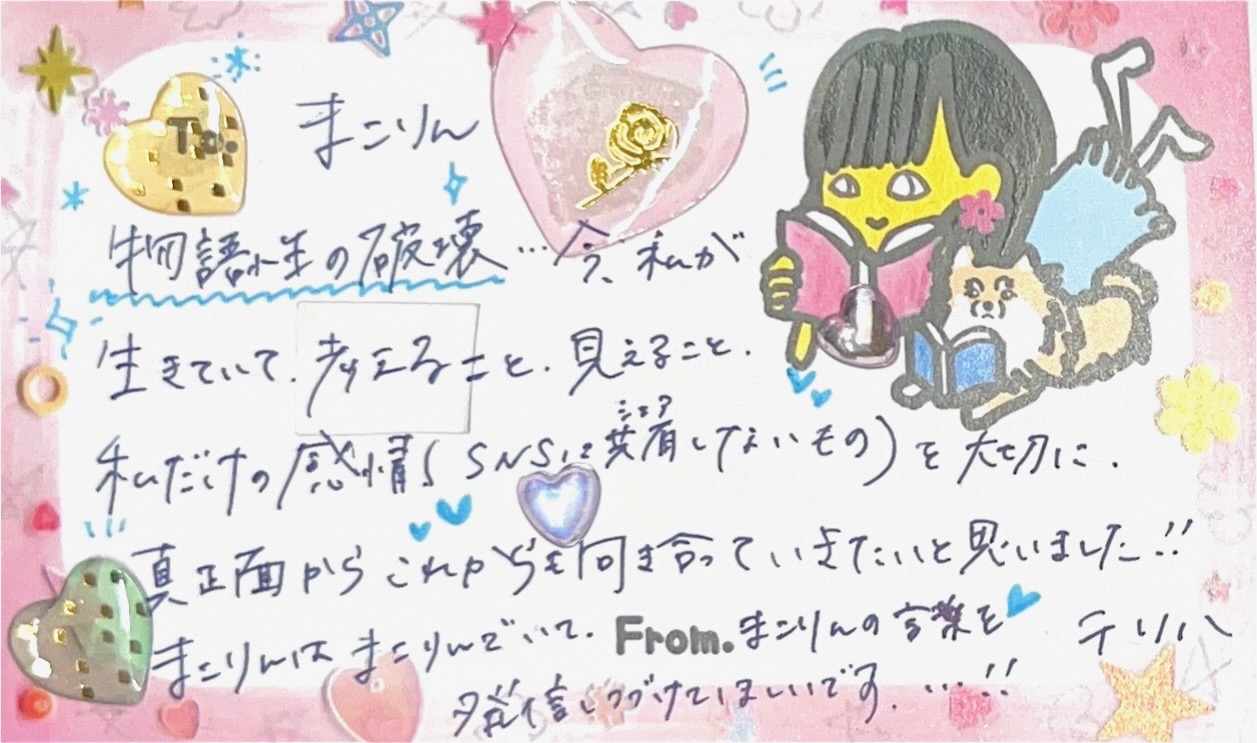 To.
まこりん
物語性の破壊…今、私が
生きていて、考えること、見えること、
私だけの感情(SNSに共有しないもの)を大切に、
シェア
真正面からこれからも向き合っていきたいと思いました!!
まこりんはまこりんでいて、まこりんの言葉を
発信しつづけてほしいです。…!!
From.
テリハ